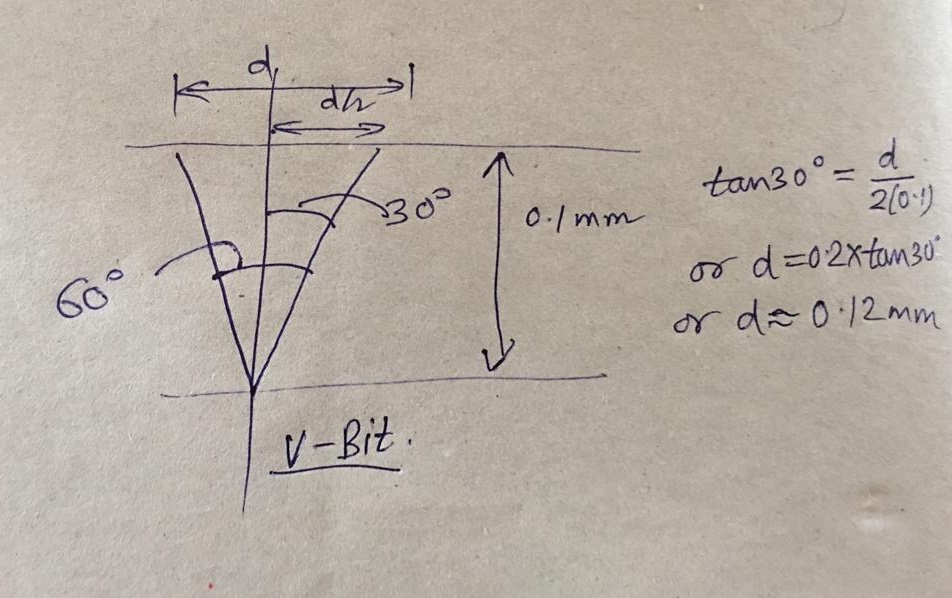 d
d/2
30°
60°
0.1mm
V-Bit.
tan30° = d/2(0.1)
or d=0.2×tan30°
or d≈ 0.12mm